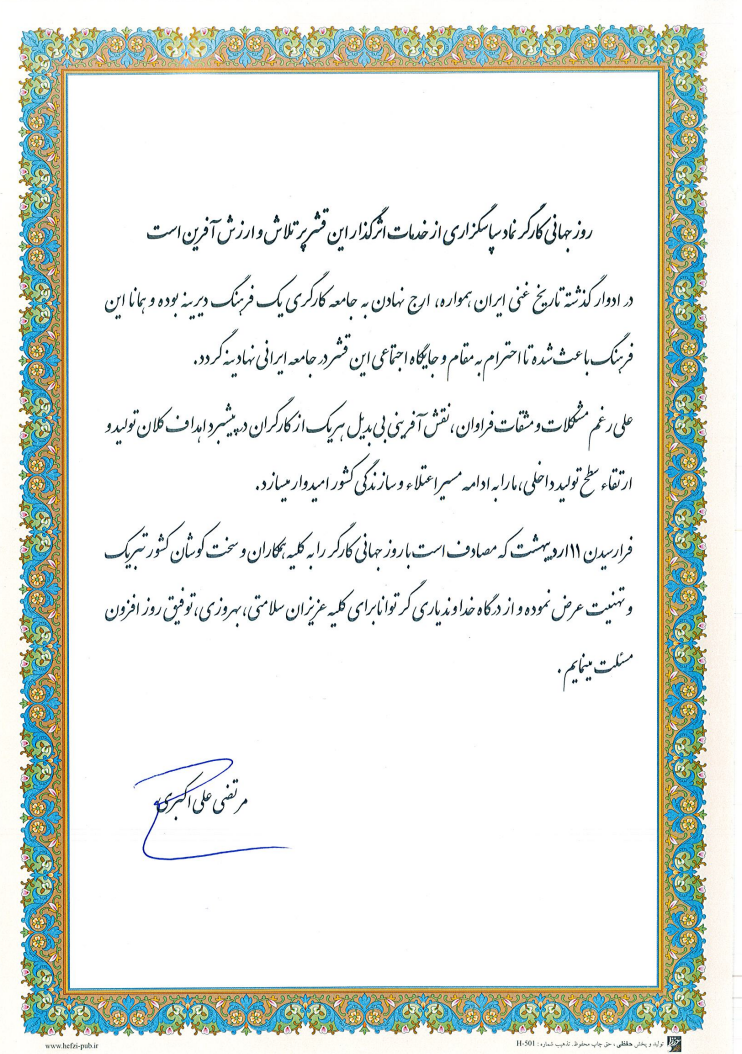 روز جهانی کارگر نماد سپاسگزاری از خدمات اثرگذار این قشر پر تلاش و ارزش آفرین است
در ادوار گذشته تاریخ غنی ایران همواره، ارج نهادن به جامعه کارگری یک فرهنگ دیرینه بوده و همانا این
فرهنگ باعث شده تا احترام به مقام و جایگاه اجتماعی این قشر در جامعه ایرانی نهادینه گردد.
علی رغم مشکلات و مشقات فراوان، نقش آفرینی بی بدیل هر یک از کارگران در پیشبرد اهداف کلان تولید و
ارتقاء سطح تولید داخلی، ما را به ادامه مسیر اعتلاء و سازندگی کشور امیدوار میسازد.
فرارسیدن ۱۱ اردیبهشت که مصادف است با روز جهانی کارگر را به کلیه همکاران و سخت کوشان کشور تبریک
و تهنیت عرض نموده و از درگاه خداوند یاری گر توانا برای کلیه عزیزان سلامتی، بهروزی، توفیق روز افزون
مسئلت مینمایم.
مرتضی علی اکبری
تولید و پخش حفظی ، حق چاپ محفوظ. تذهیب شماره : H-501
www.hefzi-pub.ir